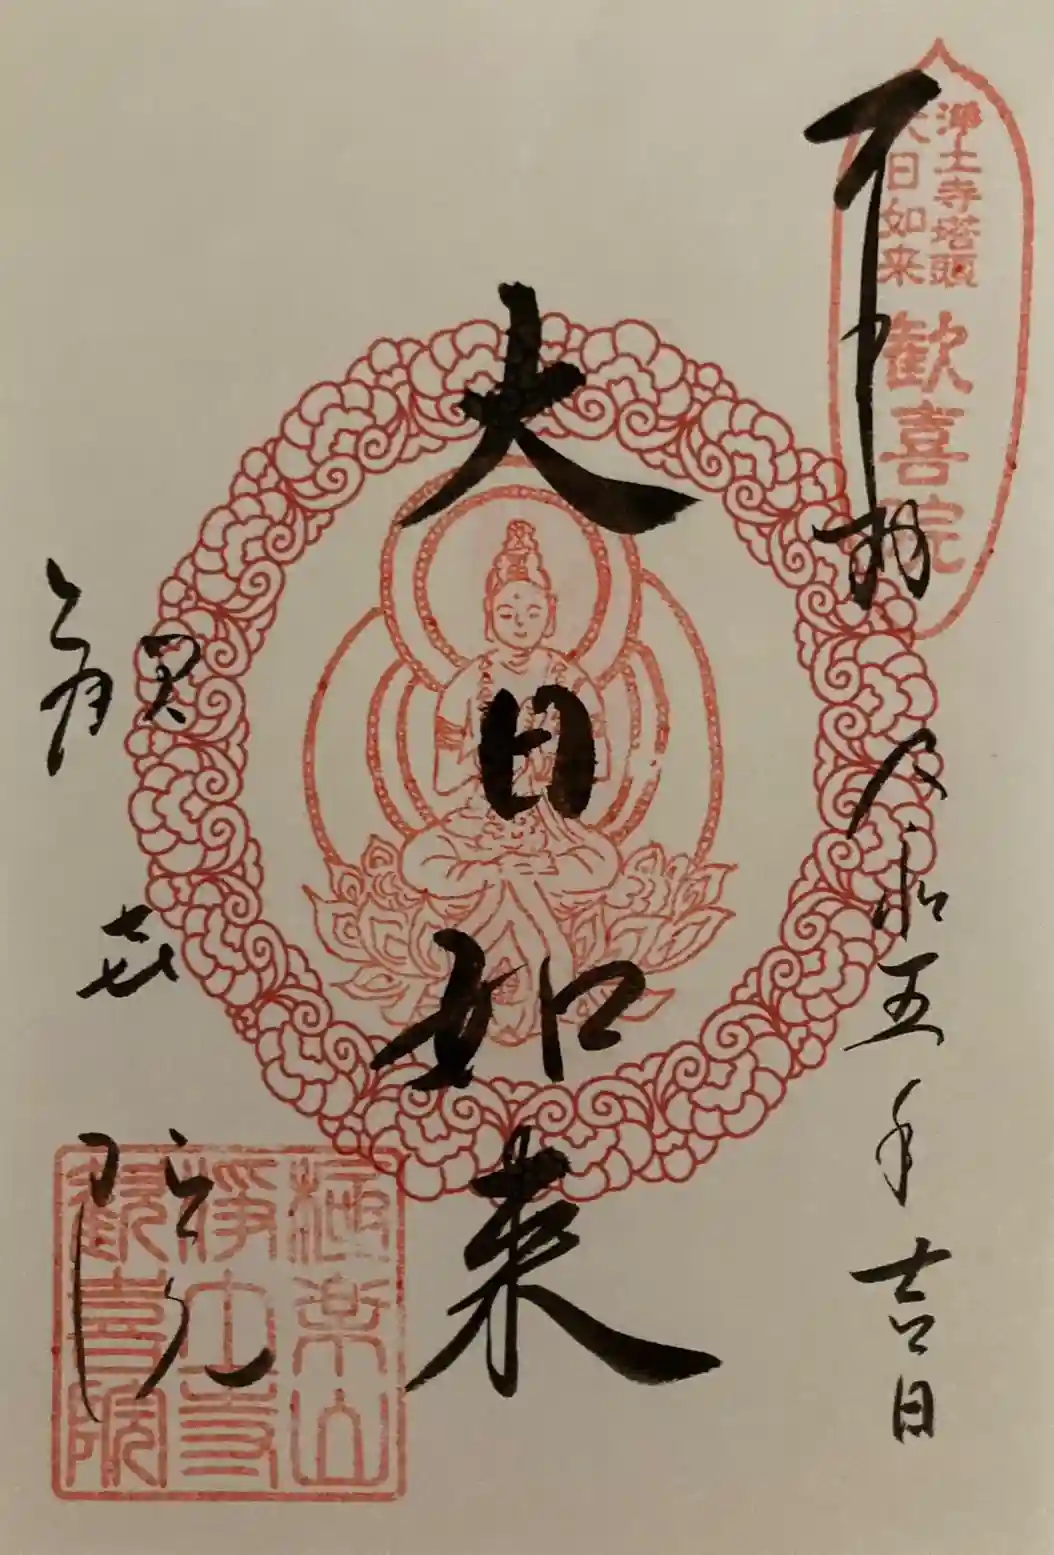 浄土寺塔頭
大日如来
歓喜院
奉拝 令和五年吉日
大日如来
歓喜院
極楽山
浄土寺
歓喜院